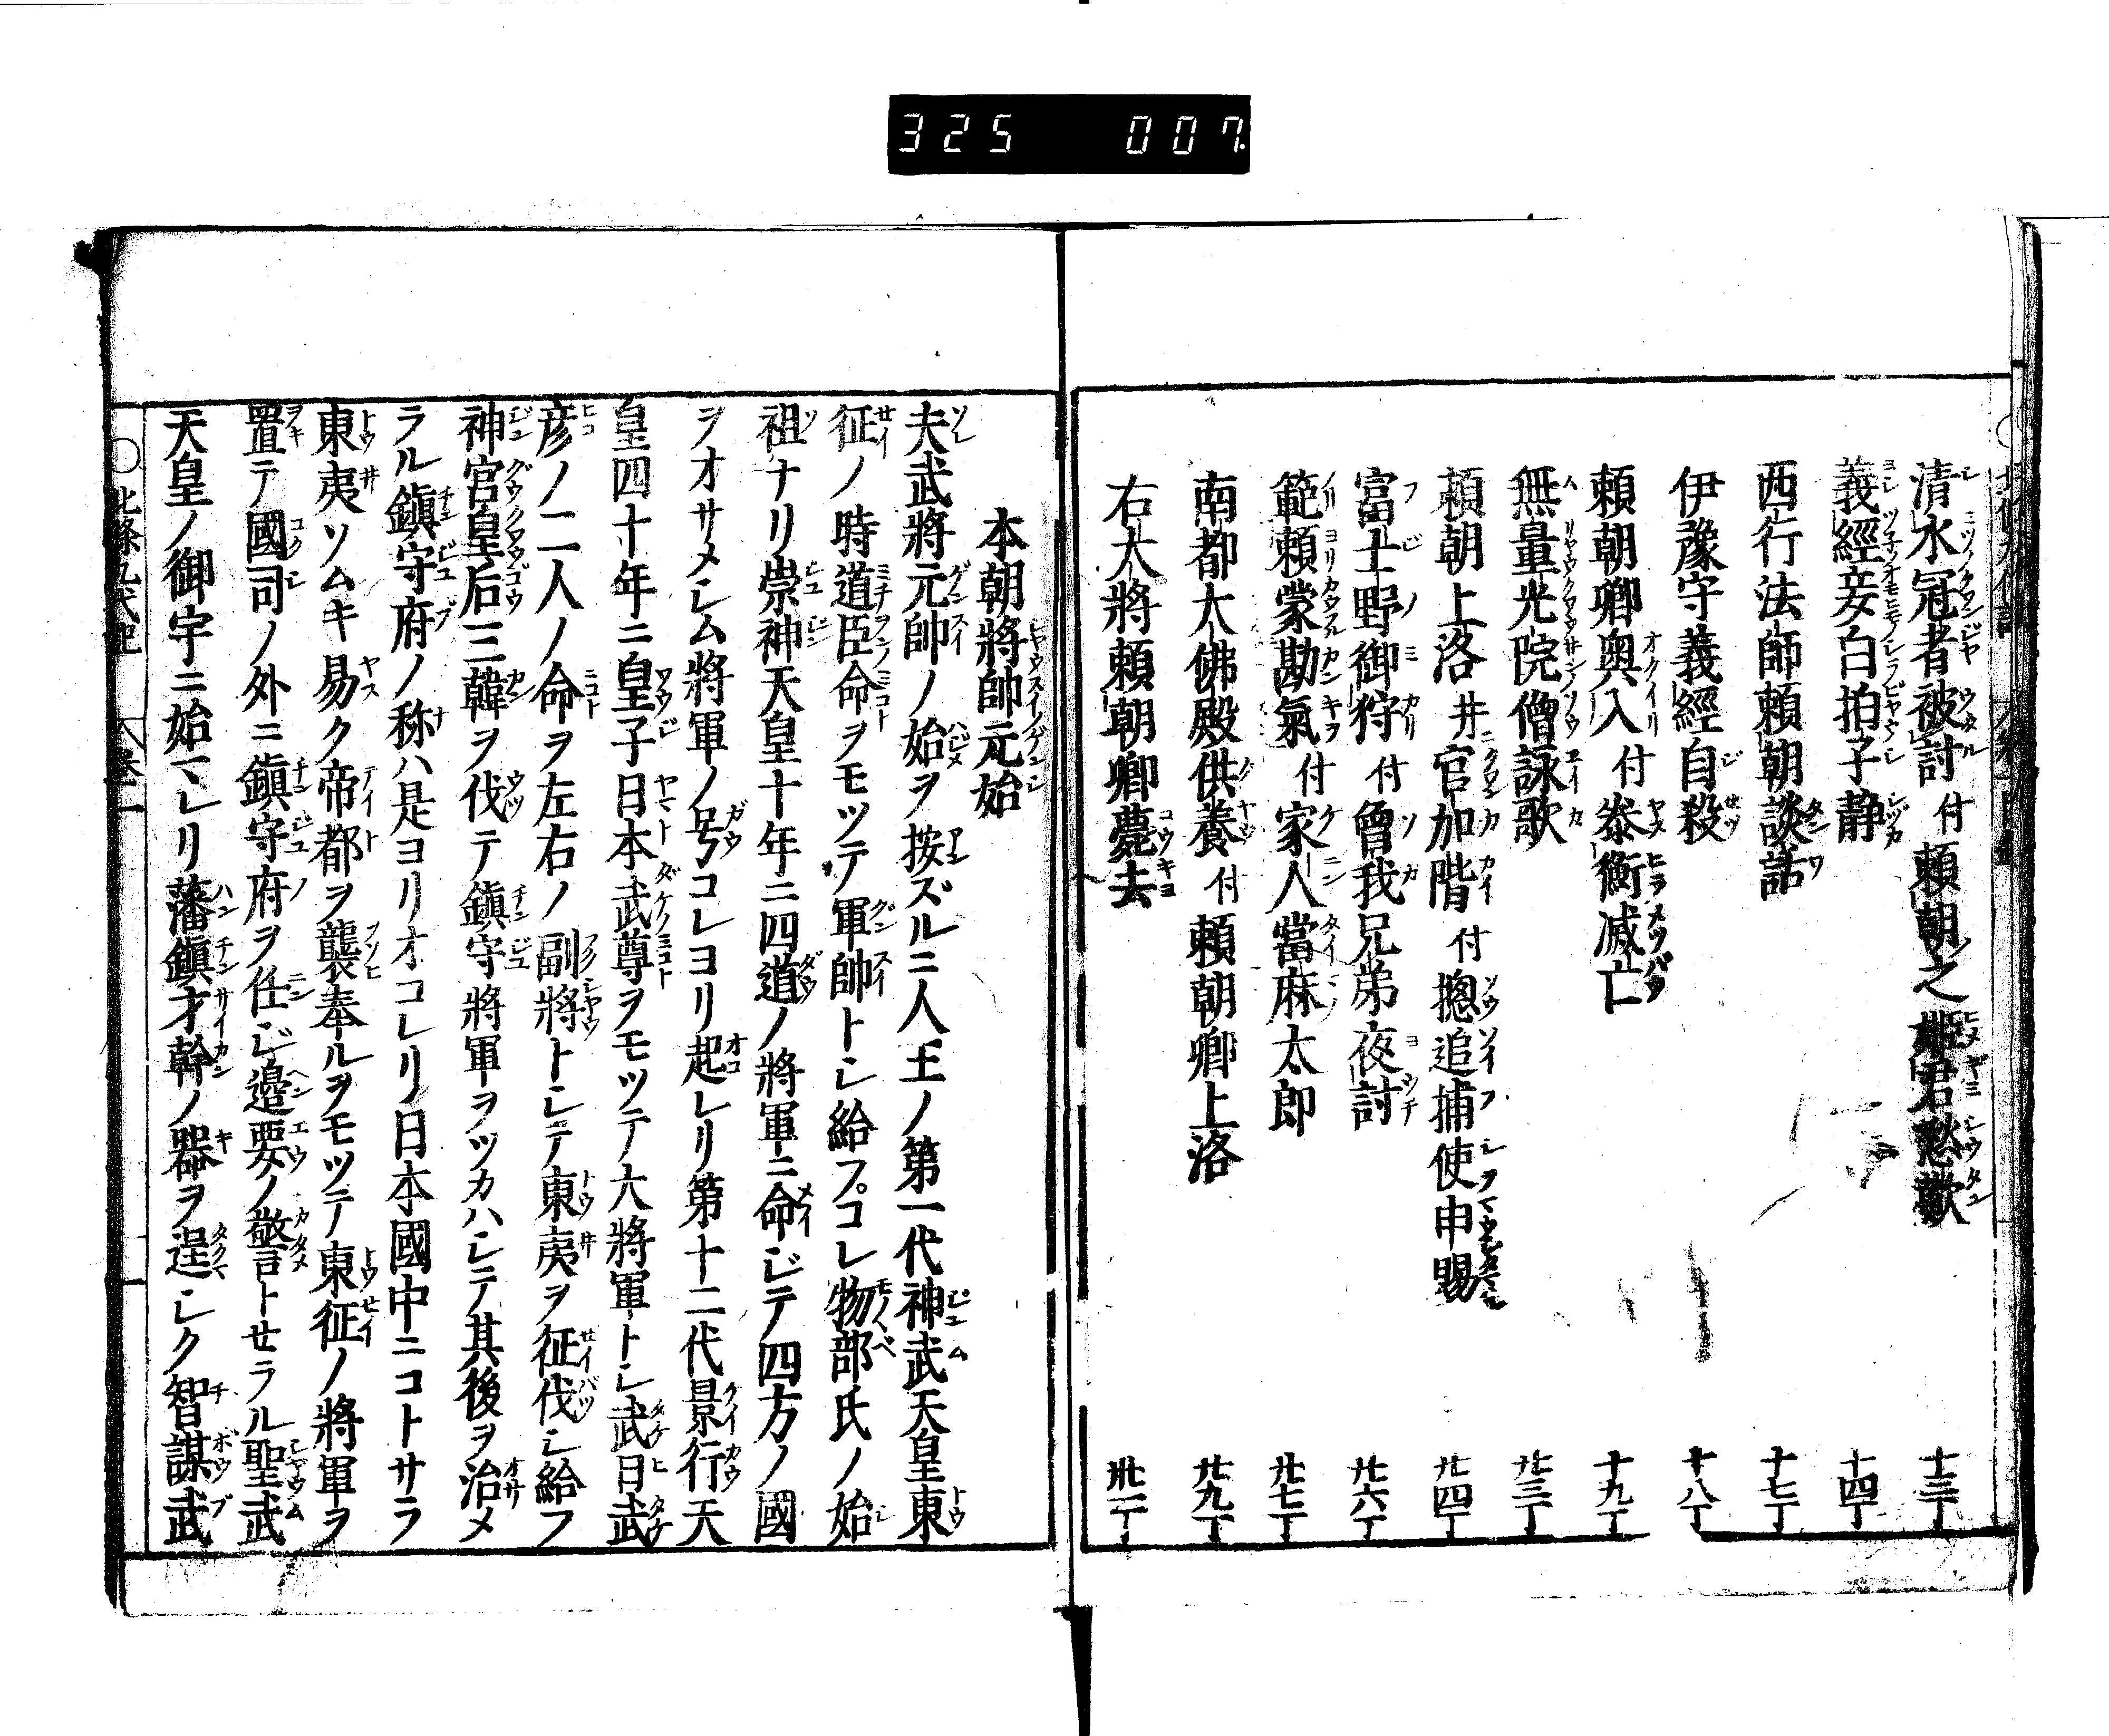 325 007
清水冠者被討付頼朝之姫君愁歎 十三丁
義經妾白拍子静 十四丁
西行法師頼朝談話 十七丁
伊豫守義經自殺 十八丁
頼朝卿奥入付泰衡滅亡 十九丁
無量光院僧詠歌 廿三丁
頼朝上洛井官加階付摠追捕使申賜 廿四丁
富士野御狩付曽我兄弟夜討 廿六丁
範頼蒙勘氣付家人當麻太郎 廿七丁
南都大佛殿供養付頼朝卿上洛 廿九丁
右大將頼朝卿薨去
本朝將帥元始
夫武將元帥ノ始ヲ按ズルニ人王ノ第一代神武天皇東
征ノ時道臣命ヲモツテ軍帥トシ給フコレ物部氏ノ始
祖ナリ崇神天皇十年ニ四道ノ將軍ニ命ジテ四方ノ國
ヲオサメシム將軍ノ号コレヨリ起レリ第十二代景行天
皇四十年ニ皇子日本武尊ヲモツテ大將軍トシ武日武
彦ノ二人ノ命ヲ左右ノ副將トシテ東夷ヲ征伐シ給フ
神宮皇后三韓ヲ伐テ鎮守將軍ヲツカハシテ其後ヲ治メ
ラル鎮守府ノ称ハ是ヨリオコレリ日本國中ニコトサラ
東夷ソムキ易ク帝都ヲ襲奉ルヲモツテ東征ノ將軍ヲ
置テ國司ノ外ニ鎮守府ヲ任ジ邉要ノ警トセラル聖武
天皇ノ御宇ニ始マレリ藩鎮才幹ノ器ヲ逞シク智謀武
北條九代記 巻一